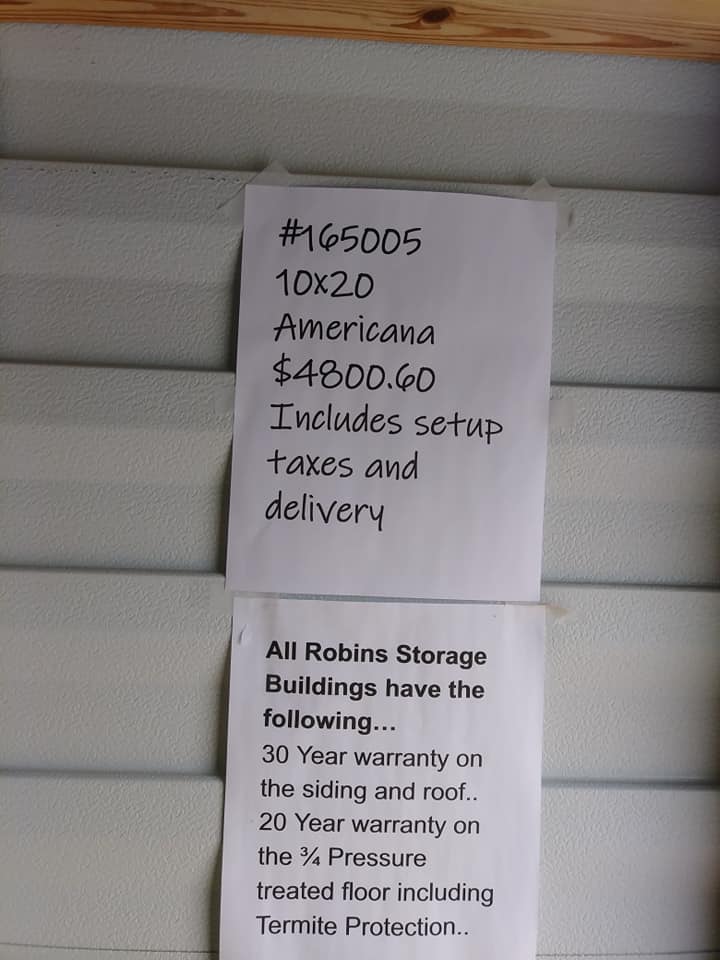 #165005
10x20
Americana
$4800.60
Includes setup
taxes and
delivery
All Robins Storage
Buildings have the
following...
30 Year warranty on
the siding and roof..
20 Year warranty on
the ¾ Pressure
treated floor including
Termite Protection..